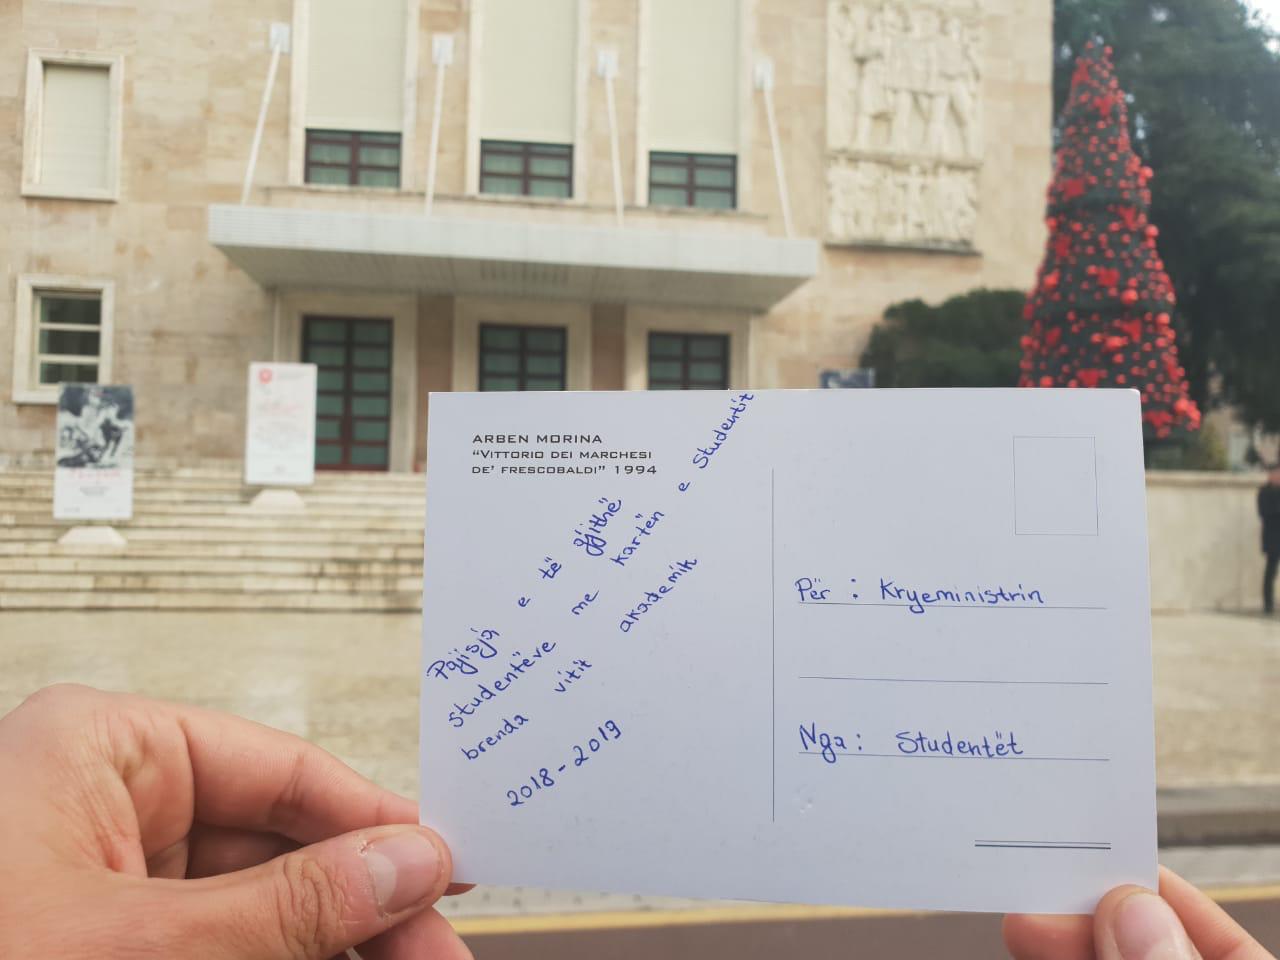 ARBEN MORINA
“VITTORIO DEI MARCHESI
DE’ FRESCOBALDI” 1994
Pajisja e të gjithë
studentëve me kartën e Studentit
brenda vitit akademik
2018-2019
Për : Kryeministrin
Nga : Studentët